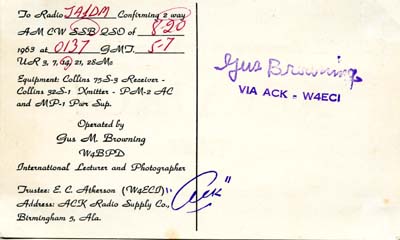 To Radio JA1DM Confirming 2 way
AM CW SSB QSO of 8-20
1963 at 0137 GMT. 5-7
UR 3, 7, 14, 21, 28Mc
Equipment: Collins 75-S-3 Receiver -
Collins 32S-1 Xmitter - PM-2 AC
and MP-1 Pwr Sup.
Operated by
Gus M. Browning
W4BPD
International Lecturer and Photographer
Trustee: E. C. Atkerson (W4ECI)
Address: ACK Radio Supply Co.,
Birmingham 5, Ala.
"Ack"
Gus Browning
VIA ACK - W4ECI